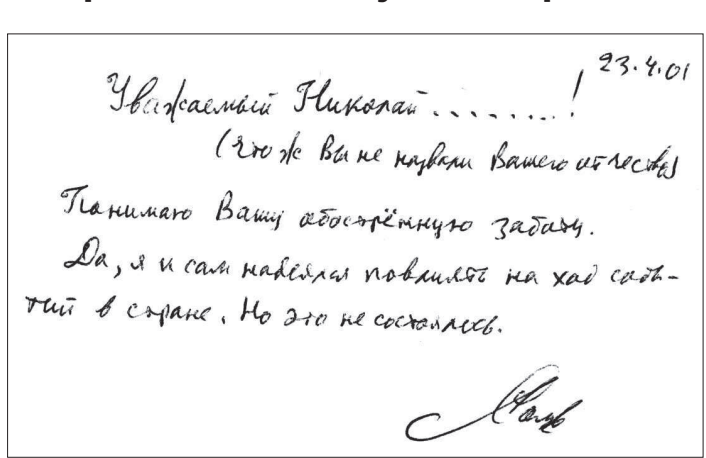 23.4.01
Уважаемый Николай ........!
(Что ж Вы не назвали Вашего отчества)
Понимаю Вашу обострённую заботу.
Да, я и сам надеялся повлиять на ход собы-
тий в стране. Но это не состоялось.